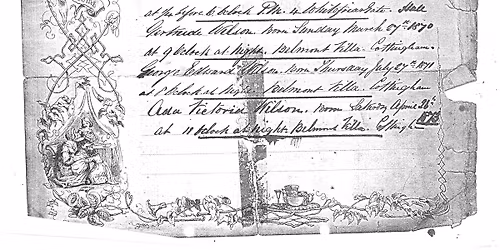 Hull
Gertrude Wilson. Born Sunday March 27th 1870
at 9 o'clock at night. Belmont Villa. Cottingham.
George Edward Wilson. Born Thursday July 27th 1871
at o'clock at Night Belmont Villa. Cottingham
Ada Victoria Wilson. Born April 26th 1873
at 11 o'clock at night. Belmont Villa. Cottingham